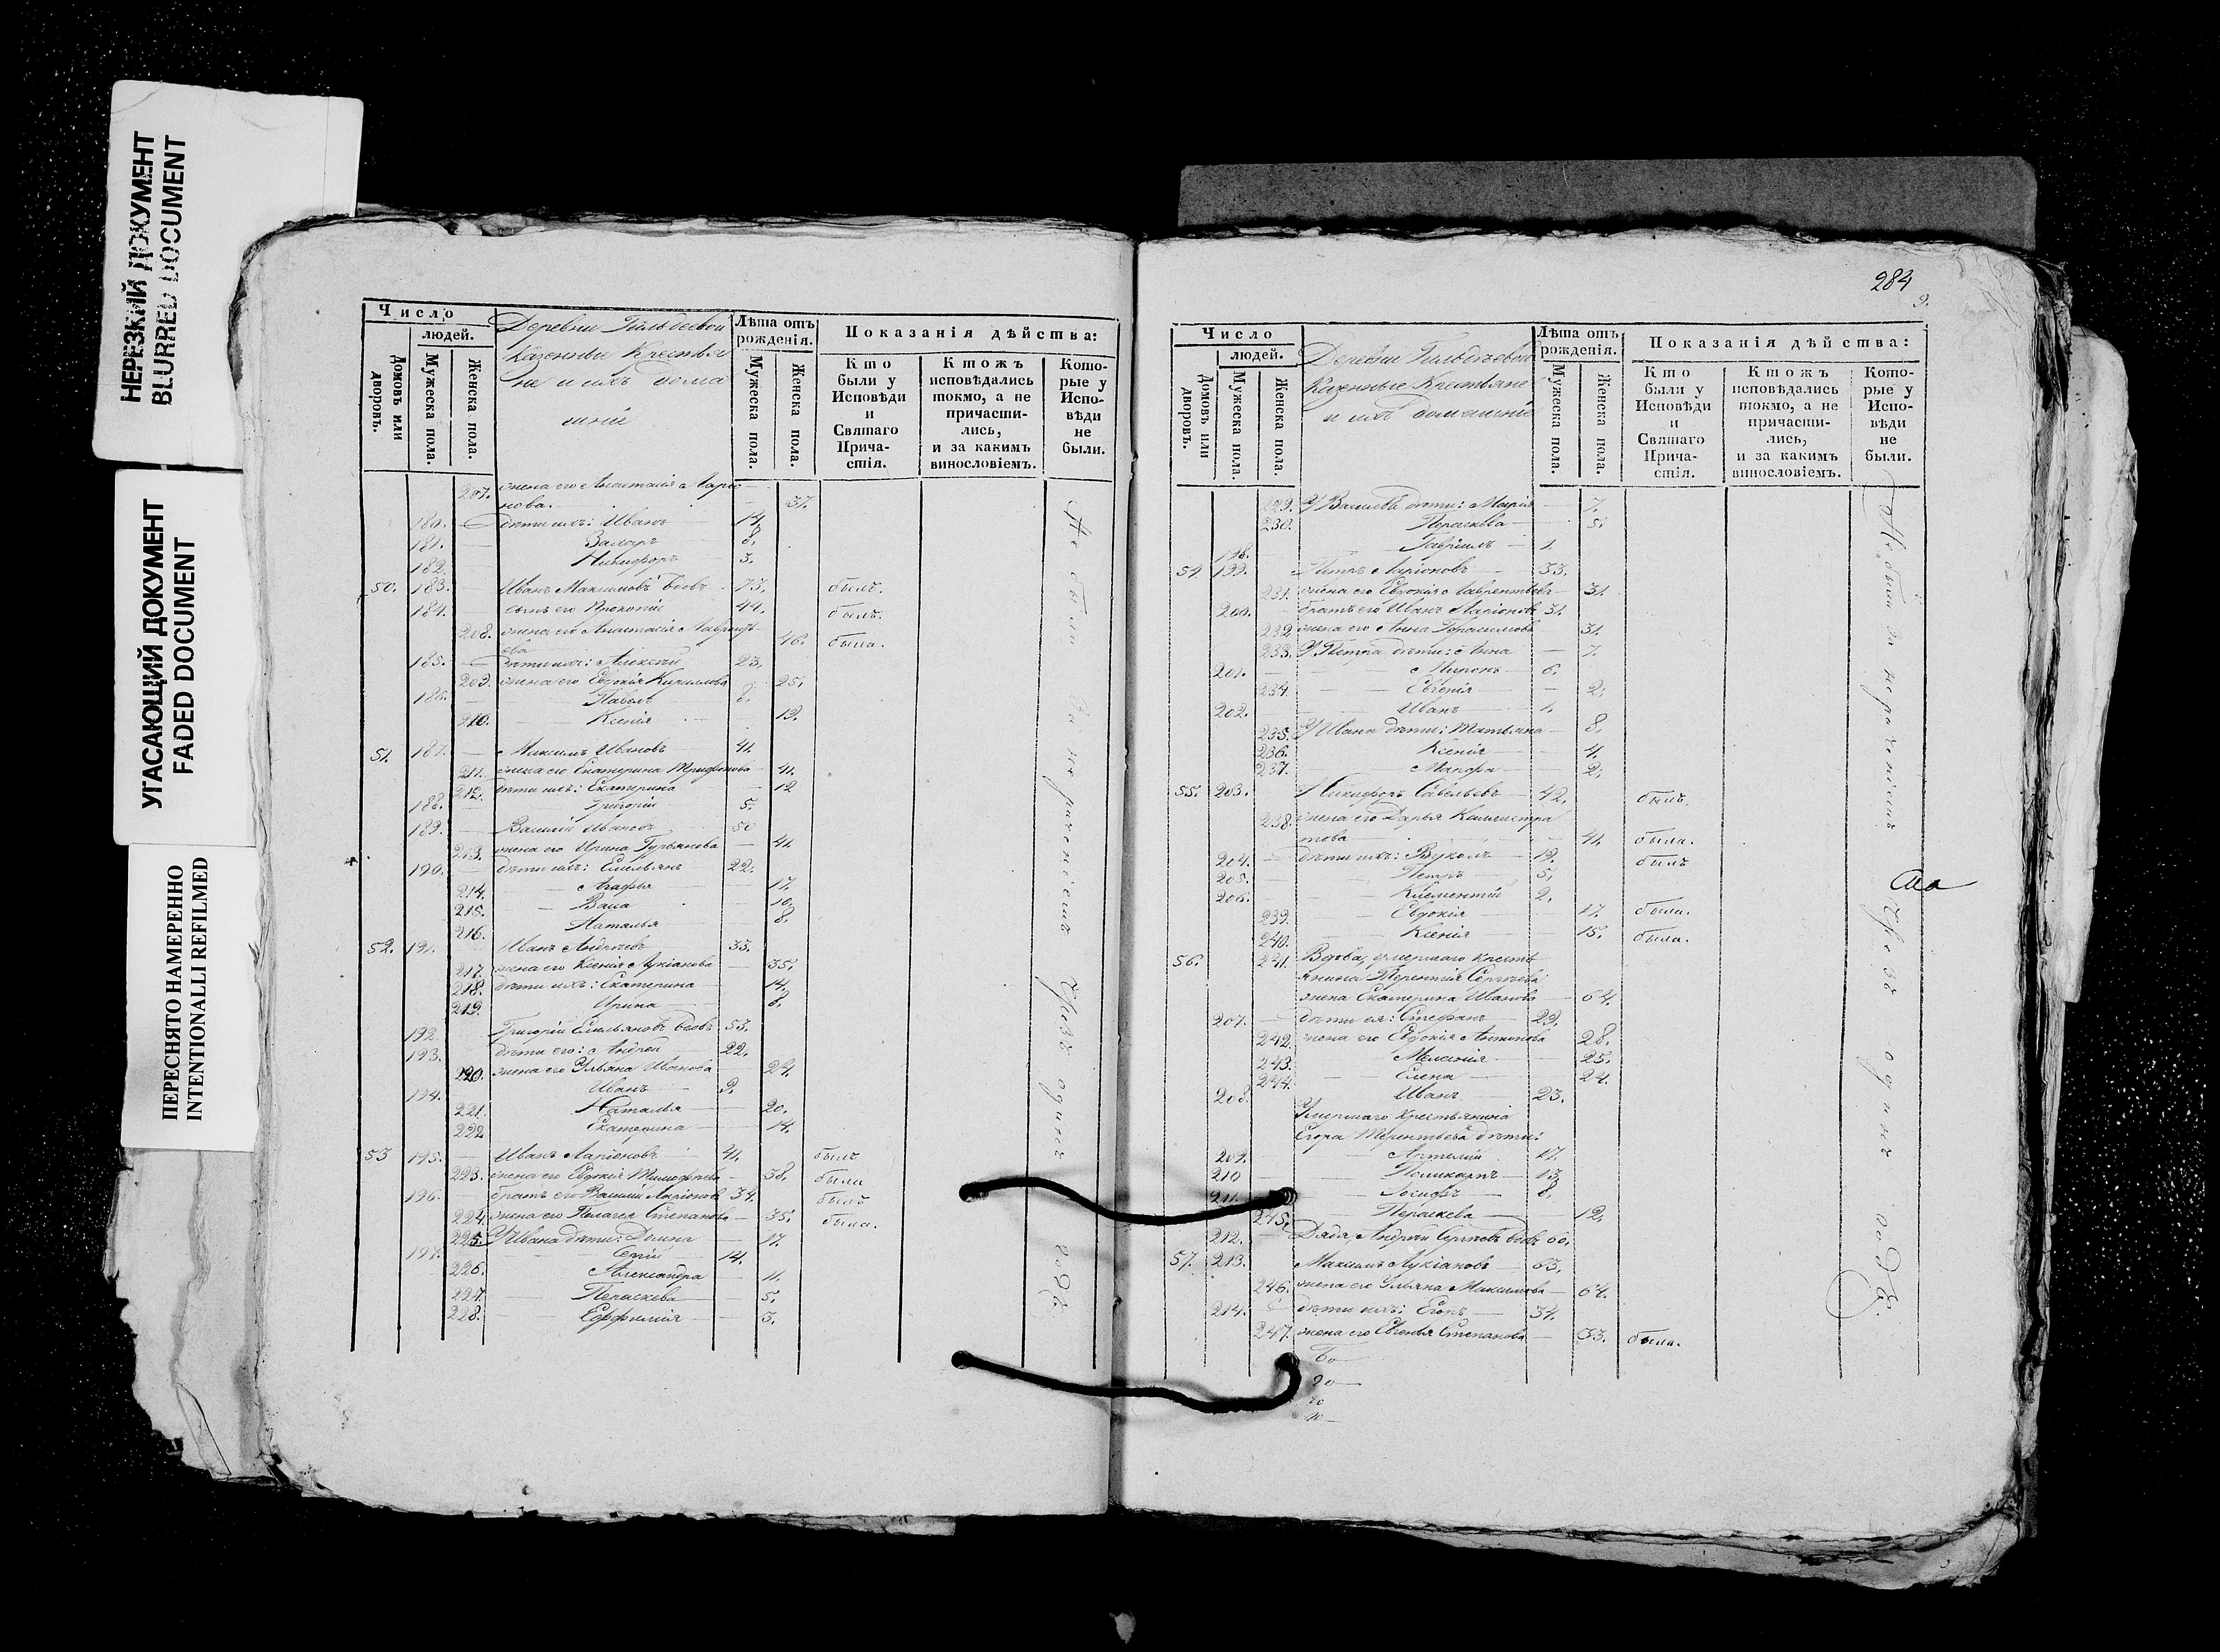 НЕРЕЗКИЙ ДОКУМЕНТ
BLURRED DOCUMENT
УГАСАЮЩИЙ ДОКУМЕНТ
FADED DOCUMENT
ПЕРЕСНЯТО НАМЕРЕННО
INTENTIONALLI REFILMED
Число
людей.
Домовъ или дворовъ.
Мужеска пола.
Женска пола.
Деревни
Казенные Крестья
не и ихъ дома
шніи
Лѣта отъ рожденія.
Мужеска пола.
Женска пола.
Показанія дѣйства:
Кто были у Исповѣди и Святаго Причастія.
Ктожъ исповѣдались токмо, а не причастились, и за какимъ винословіемъ.
Которые у Исповѣди не были.
207. жена его Анастасія Ларіо
нова. 37.
180. дѣти ихъ: Иванъ 14.
181. Захаръ 8.
182. Никифоръ 3.
50. 183. Иванъ Максимовъ вдовъ 73. былъ.
184. сынъ его Прокопій 44. былъ.
208. жена его Анастасія Лаврентье
ва 46. была.
185. дѣти ихъ: Алексѣй 23.
209. жена его Евдокія Кирилова 25.
186. Павелъ 8.
210. Ксенія 19.
51. 187. Максимъ Ивановъ 41.
211. жена его Екатерина Трифонова 41.
212. дѣти ихъ: Екатерина 12
188. Григорій 5.
189. Василій Ивановъ 50
213. жена его Ирина Гурьянова 41.
190. дѣти ихъ: Емельянъ 22.
214. Агафья 17.
215. Васа 10.
216. Наталья 8.
52. 191. Иванъ Андреевъ 33.
217. жена его Ксенія Лукіанова 35.
218. дѣти ихъ: Екатерина 14.
219. Ирина 8.
192. Григорій Емельяновъ вдовъ 53.
193. дѣти его: Андрей 22.
220. жена его Ульяна Иванова 24.
194. Иванъ 9.
221. Наталья 20.
222 Екатерина 14.
53 195. Иванъ Ларіоновъ 41. былъ
223. жена его Евдокія Тимофѣева 38. была
196. братъ его Василій Ларіоновъ 34. былъ
224. жена его Пелагея Степанова 35. была.
225. У Ивана дѣти: Домна 17.
197. Сергій 14.
226. Александра 11.
227. Параскева 5.
228. Евфимія 3.
Не были за нераченіемъ Чрезъ одинъ годъ.
284
9.
Число
людей.
Домовъ или дворовъ.
Мужеска пола.
Женска пола.
Деревни
Казенные Крестьяне
и ихъ домашніе
Лѣта отъ рожденія.
Мужеска пола.
Женска пола.
Показанія дѣйства:
Кто были у Исповѣди и Святаго Причастія.
Ктожъ исповѣдались токмо, а не причастились, и за какимъ винословіемъ.
Которые у Исповѣди не были.
229. У Василья дѣти: Марія 7.
230. Параскева 5.
198. Гавріилъ 1.
54. 199. Петръ Ларіоновъ 33.
231. жена его Евдокія Лаврентьева 31.
200. братъ его Иванъ Ларіоновъ 31.
232 жена его Анна Герасимова 31.
233. У Петра дѣти: Анна 7.
201. Миронъ 6.
234. Евгенія 2.
202. Иванъ 1.
235. У Ивана дѣти: Татьяна 8.
236. Ксенія 4.
237. Марфа 2.
55. 203. Никифоръ Савельевъ 42. былъ.
238. жена его Дарья Калистра
това 41. была.
204. дѣти ихъ: Вуколъ 19. былъ
205. Петръ 5.
206. Климентій 2.
239. Евдокія 17. была.
240. Ксенія 15. была.
56. 241. Вдова, умершаго крестья
янина Терентія Сергѣева
жена Екатерина Иванова 64.
207. дѣти ея: Стефанъ 29.
242. жена его Евдокія Антонова 28.
243. Меланія 25.
244. Елена 24.
208. Иванъ 23.
Умершаго Крестьянина
Егора Терентьева дѣти:
209. 17.
210 Поликарпъ 13.
211. Іосифъ 8.
245. Параскева 12.
212. Дядя, Андрей Сергѣевъ вдовъ 60.
57. 213. Максимъ Лукіановъ 63.
246. жена его Ульяна Максимова 64.
214. дѣти ихъ: Егоръ 34.
247. жена его Евгенья Степанова 33. была.
Не были за нераченіемъ Чрезъ одинъ годъ.